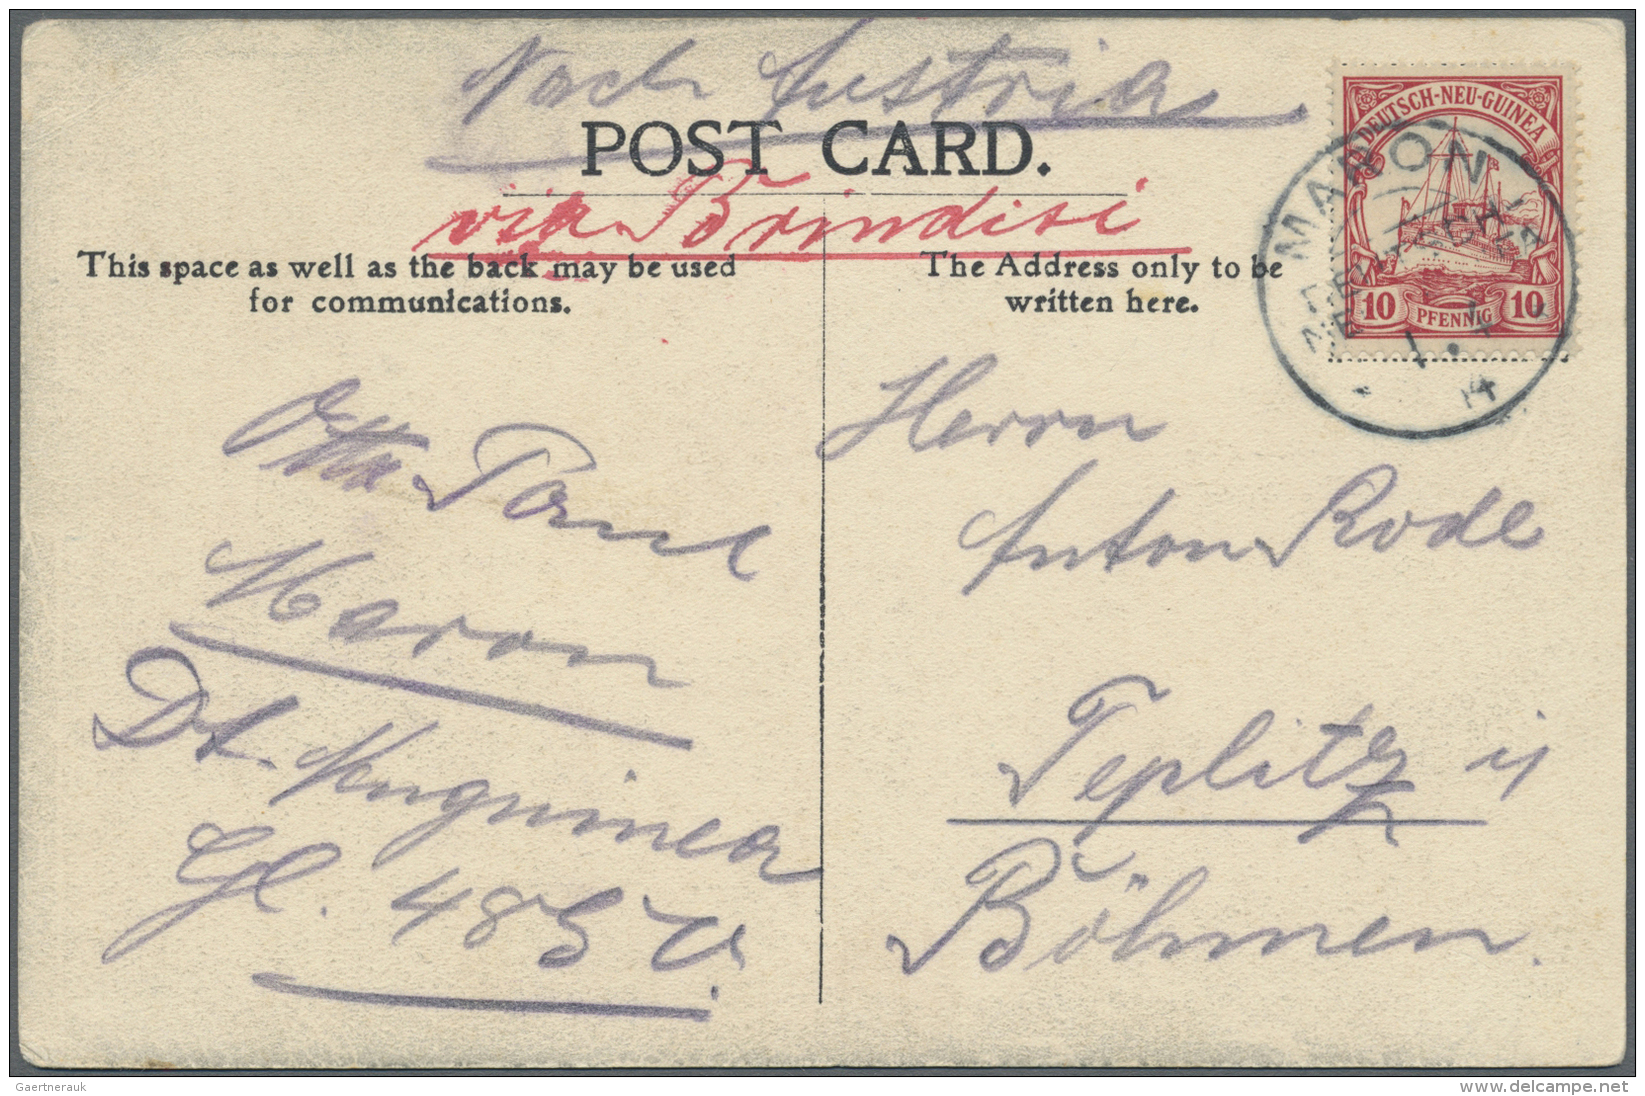 Nach Austria
POST CARD.
via Brindisi
This space as well as the back may be used
for communications.
The Address only to be
written here.
DEUTSCH-NEU-GUINEA
10 PFENNIG 10
MARON
1.7
14
Otto Paul
Maron
Dt. Neuguinea
Herrn
Anton Rode
Teplitz i/
Böhmen.
Gaertnerauk
www.delcampe.net